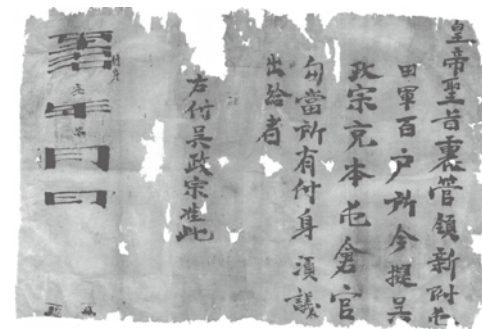 皇帝聖旨裏管領新附屯
田軍百户所今提吴
政宗充本屯倉官
勾當所有付身湏議
出給者
右付吴政宗准此